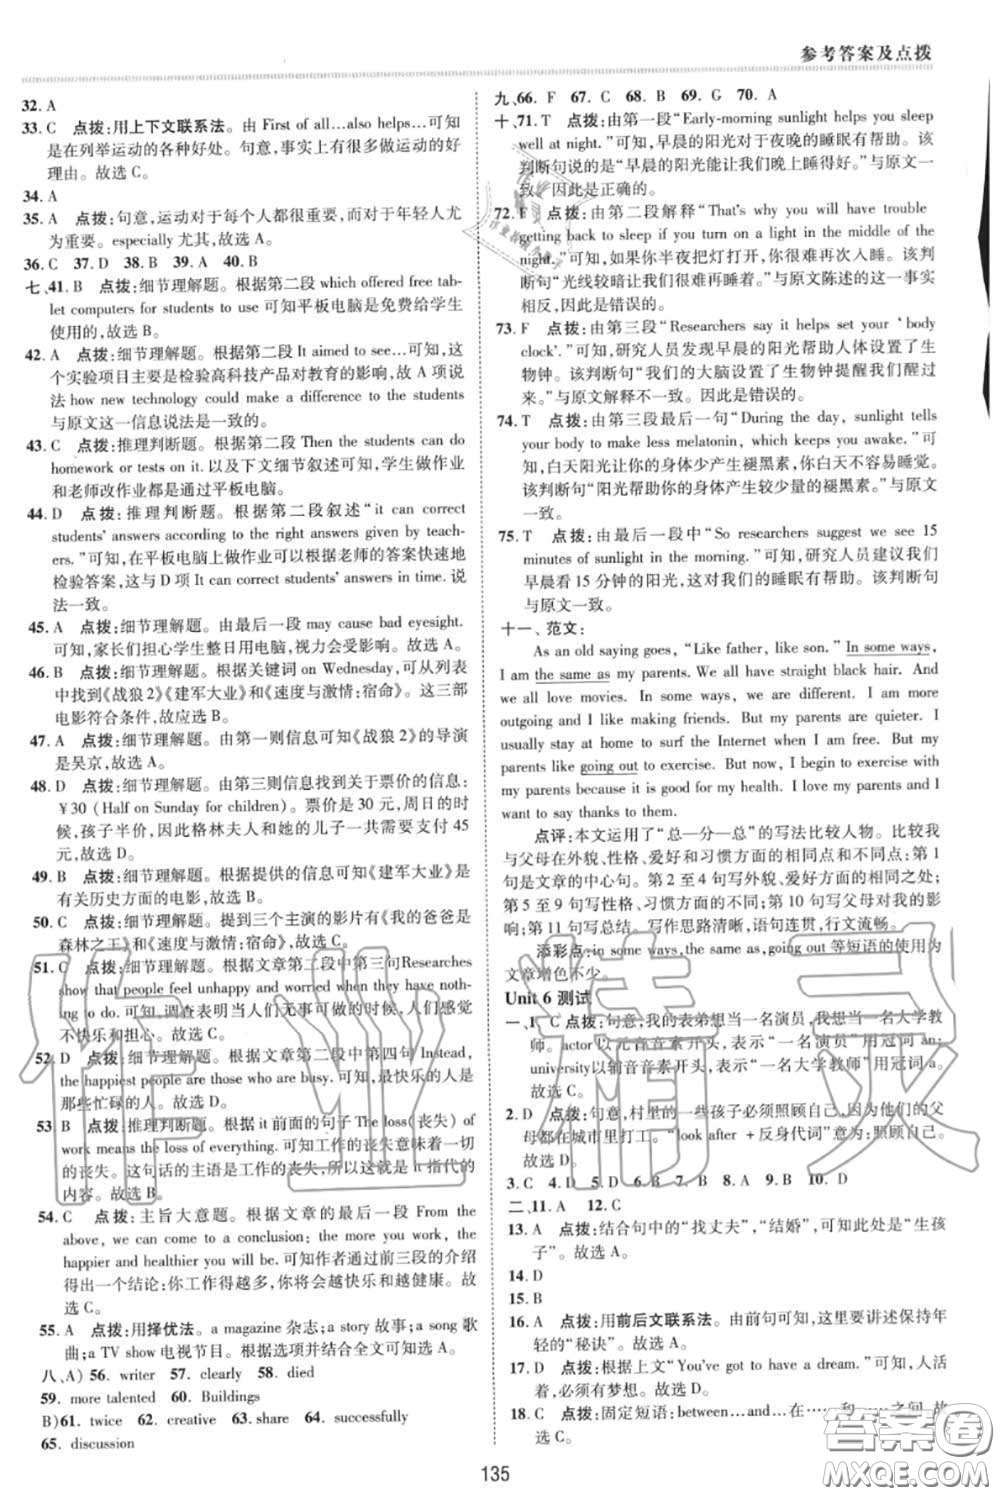 参考答案及点拨
32. A
33. C　点拨：用上下文联系法。由 First of all…also helps…可知
是在列举运动的各种好处。句意，事实上，有很多做运动的好
理由。故选 C。
34. A
35. A　点拨：句意，运动对于每个人都很重要，而对于年轻人尤
为重要。especially 尤其，故选 A。
36. C　37. D　38. A　39. A　40. B
七、41. B　点拨：细节理解题。根据第二段 which offered free tab-
let computers for students to use 可知平板电脑是免费给学生
使用的，故选 B。
42. A　点拨：细节理解题。根据第二段 It aimed to see…可知，这
个实验项目主要是检验高科技产品对教育的影响，故 A 项说
法 how new technology could make a difference to the students
与原文这一信息说法是一致的。
43. C　点拨：推理判断题。根据第二段 Then the students can do
homework or tests on it. 以及下文细节叙述可知，学生做作业
和老师改作业都是通过平板电脑。
44. D　点拨：推理判断题。根据第二段叙述“it can correct
students' answers according to the right answers given by teach-
ers. ”可知，在平板电脑上做作业可以根据老师的答案快速地
检验答案，这与 D 项 It can correct students' answers in time. 说
法一致。
45. A　点拨：细节理解题。由最后一段 may cause bad eyesight.
可知，家长们担心学生整日用电脑，视力会受影响。故选 A。
46. B　点拨：细节理解题。根据关键词 on Wednesday，可从列表
中找到《战狼 2》《建军大业》和《速度与激情：宿命》。这三部
电影符合条件，故应选 B。
47. A　点拨：细节理解题。由第一则信息可知《战狼 2》的导演
是吴京，故选 A。
48. D　点拨：细节理解题。由第三则信息找到关于票价的信息：
￥30 (Half on Sunday for children)。票价是 30 元，周日的时
候，孩子半价，因此格林夫人和她的儿子一共需要支付 45
元，故选 D。
49. B　点拨：细节理解题。根据提供的信息可知《建军大业》是
有关历史方面的电影，故选 B。
50. C　点拨：细节理解题。提到三个主演的影片有《我的爸爸是
森林之王》和《速度与激情：宿命》，故选 C。
51. C　点拨：细节理解题。根据文章第二段中第三句 Researches
show that people feel unhappy and worried when they have noth-
ing to do. 可知，调查表明当人们无事可做的时候，人们会感觉
不快乐和担心。故选 C。
52. D　点拨：细节理解题。根据文章第二段中第四句 Instead,
the happiest people are those who are busy. 可知，最快乐的人是
那些忙碌的人。故选 D。
53. B　点拨：推理判断题。根据 it 前面的句子 The loss（丧失）of
work means the loss of everything. 可知工作的丧失意味着一切
的丧失。这句话的主语是工作的丧失，所以这是 it 指代的
内容。故选 B。
54. C　点拨：主旨大意题。根据文章的最后一段 From the
above, we can come to a conclusion; the more you work, the
happier and healthier you will be. 可知作者通过前三段的介绍
得出一个结论：你工作得越多，你就会越快乐和越健康。故
选 C。
55. A　点拨：用择优法。a magazine 杂志；a story 故事；a song 歌
曲；a TV show 电视节目。根据选项并结合全文可知选 A。
八、A) 56. writer　57. clearly　58. died
59. more talented　60. Buildings
B) 61. twice　62. creative　63. share　64. successfully
65. discussion
九、66. F　67. C　68. B　69. G　70. A
十、71. T　点拨：由第一段“Early-morning sunlight helps you sleep
well at night.”可知，早晨的阳光对于夜晚的睡眠有帮助。该
判断句说的是“早晨的阳光能让我们晚上睡得好。”与原文一
致，因此是正确的。
72. F　点拨：由第二段解释“That's why you will have trouble
getting back to sleep if you turn on a light in the middle of the
night.”可知，如果你半夜把灯打开，你很难再次入睡。该判
断句“光线较暗让我们很难再次入睡。”与原文陈述的这一事实
相反，因此是错误的。
73. F　点拨：由第三段“Researchers say it helps set your ‘body
clock’.”可知，研究人员发现早晨的阳光帮助人体设置了生
物钟。该判断句“我们的大脑了生物钟提醒我们
早起。”与原文解释不一致。因此是错误的。
74. T　点拨：由第三段最后一句“During the day, sunlight tells
your body to make less melatonin, which keeps you awake.”可
知，白天阳光让你的身体少产生褪黑素，你从而不容易睡觉。
该判断句“阳光帮助你的身体产生较少量的褪黑素。”与原文
一致。
75. T　点拨：由最后一段中“So researchers suggest we see 15
minutes of sunlight in the morning.”可知，研究人员建议我们
早晨看 15 分钟的阳光，这对我们的睡眠有帮助。该判断句
与原文一致。
十一、范文：
As an old saying goes, “Like father, like son.” In some ways,
I am the same as my parents. We all have straight black hair. And
we all love movies. In some ways, we are different. I am more
outgoing and I like making friends. But my parents are quieter. I
usually stay at home to surf the Internet when I am free. But my
parents like going out to exercise. But now, I begin to exercise with
my parents because it is good for my health. I love my parents and I
want to say thanks to them.
点评：本文运用了“总—分—总”的写法比较人物。比较我
与父母在外貌、性格、爱好和习惯方面的相同点和不同点；第 1
句是文章的中心句。第 2 至 4 句写外貌、爱好方面的相同之处；
第 5 至 9 句写性格、爱好方面的不同；第 10 句写父母对我的影
响。第 11 句写总结。写作思路清晰，语句连贯，行文流畅。
添彩点：in some ways, the same as, going out 等短语的使用为
文章增色不少。
Unit 6 测试
一、1. C　点拨：句意，我的表弟想当一名演员，我想当一名大学教
师。actor 以元音音素开头，表示“一名演员”用冠词 an；
university 以辅音音素开头，表示“一名大学教师”用冠词 a。
故选 C。
2. D　点拨：句意，村里的一些孩子必须照顾自己，因为他们的父
母都在城市里打工。“look after + 反身代词”意为：照顾自己。
故选 D。
3. C　4. D　5. D　6. D　7. B　8. B　9. A　10. D
二、11. A　12. C
13. A　点拨：结合句中的“找丈夫”，“结婚”，可知此处是“生孩
子”。故选 A。
14. D
15. B
16. A　点拨：用前后文联系法。由前句可知，这里要讲述保持年
轻的“秘诀”。故选 A。
17. D　点拨：根据上文“You've got to have a dream.”可知，人活
着，必须有梦想。故选 D。
18. C　点拨：固定短语：between…and…在……和……之间，故
选 C。
135
作业精灵
答案圈
MXQE.COM